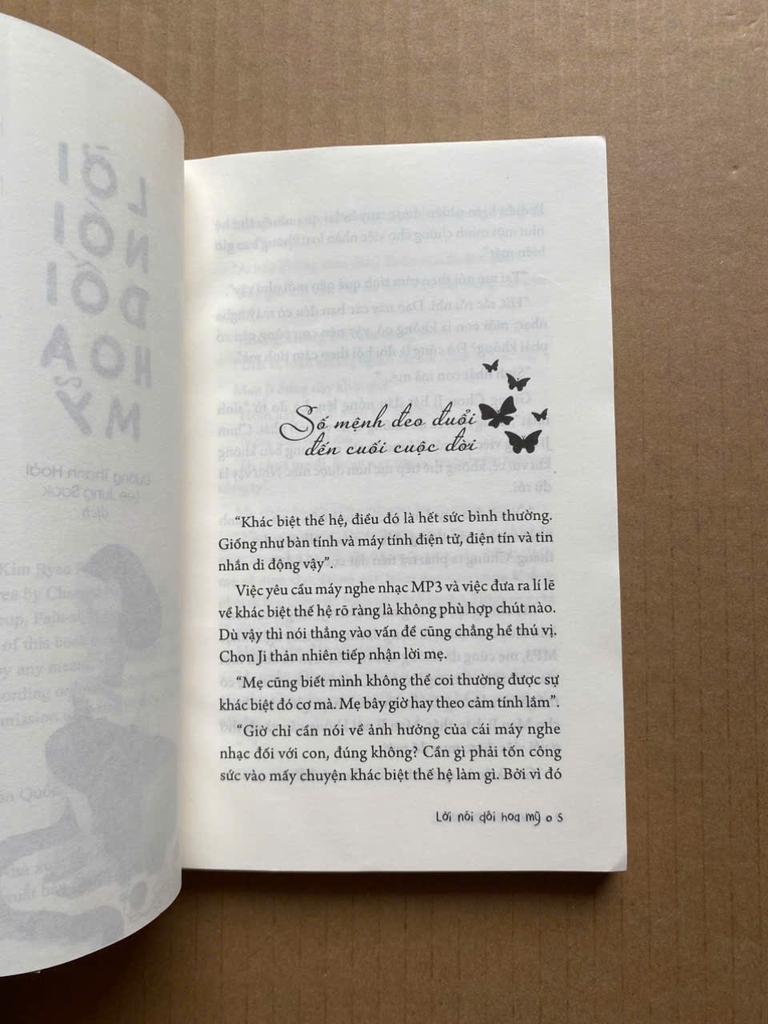 Số mệnh đeo đuổi
đến cuối cuộc đời
“Khác biệt thế hệ, điều đó là hết sức bình thường.
Giống như bàn tính và máy tính điện tử, điện tín và tin
nhắn di động vậy”.
Việc yêu cầu máy nghe nhạc MP3 và việc đưa ra lí lẽ
về khác biệt thế hệ rõ ràng là không phù hợp chút nào.
Dù vậy thì nói thẳng vào vấn đề cũng chẳng hề thú vị.
Chon Ji thản nhiên tiếp nhận lời mẹ.
“Mẹ cũng biết mình không thể coi thường được sự
khác biệt đó cơ mà. Mẹ bây giờ hay theo cảm tính lắm”.
“Giờ chỉ cần nói về ảnh hưởng của cái máy nghe
nhạc đối với con, đúng không? Cần gì phải tốn công
sức vào mấy chuyện khác biệt thế hệ làm gì. Bởi vì đó
Lời nói dối hoa mỹ o 5